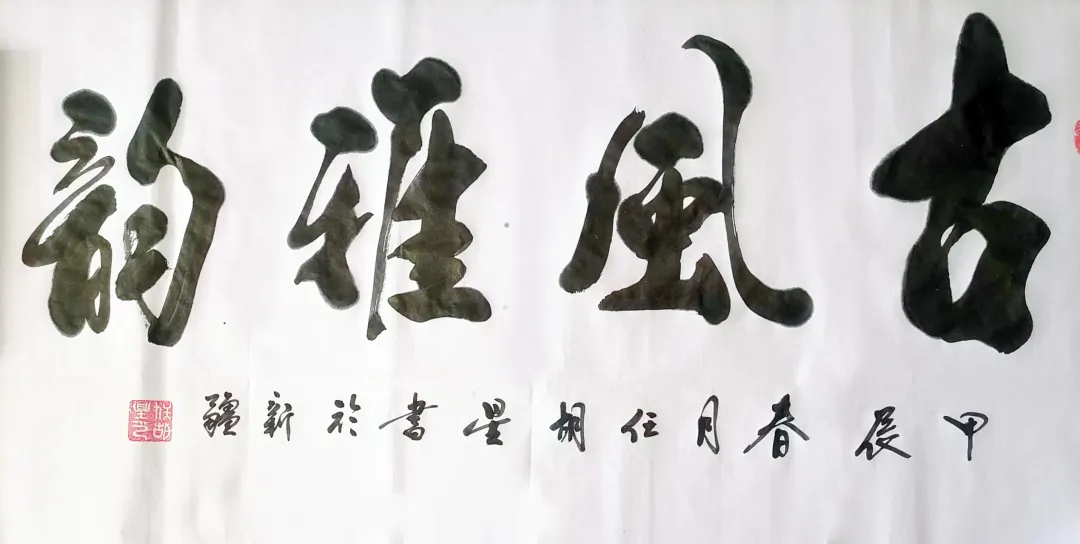 古風雅韵
甲辰春月任胡星書於新疆